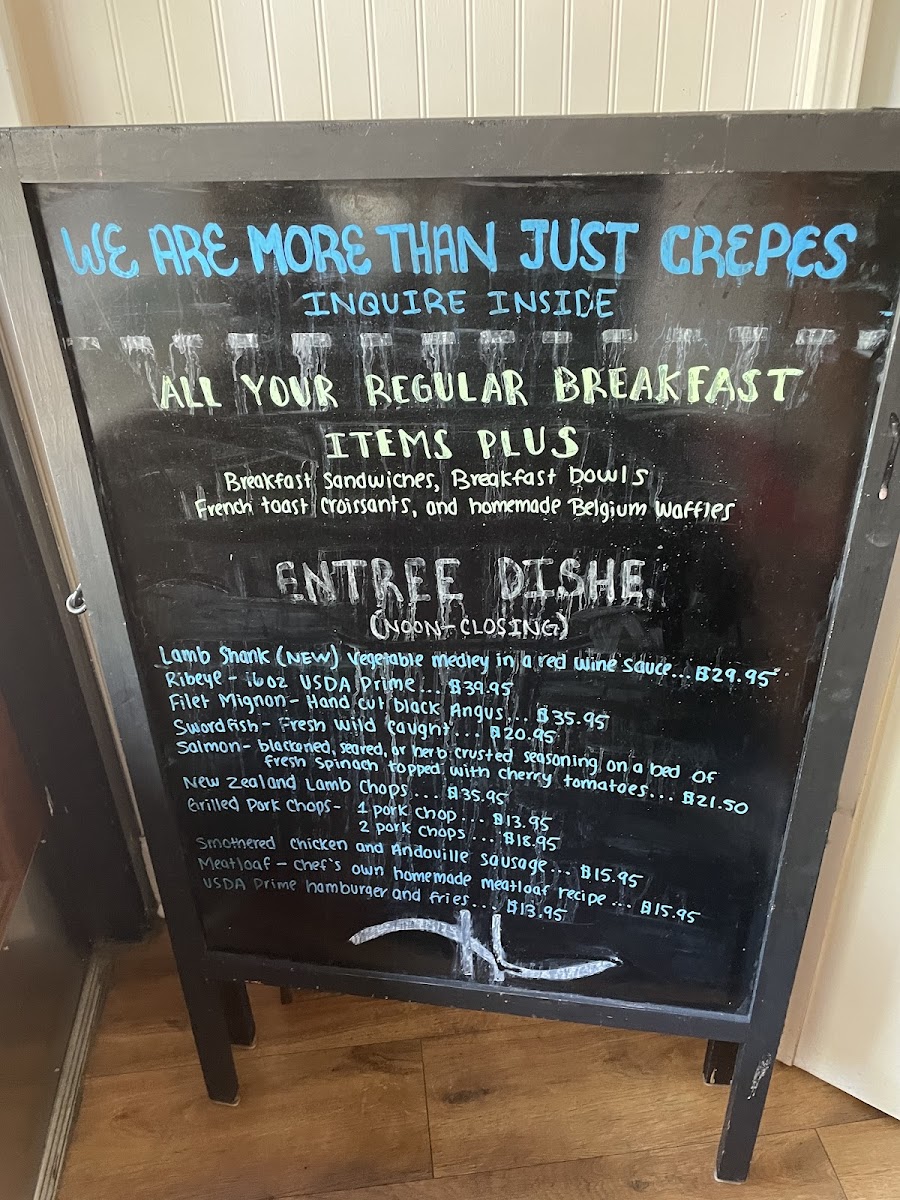 WE ARE MORE THAN JUST CREPES
INQUIRE INSIDE
ALL YOUR REGULAR BREAKFAST
ITEMS PLUS
Breakfast Sandwiches, Breakfast bowls
French toast Croissants, and homemade Belgium Waffles
ENTREE DISHE
(NOON-CLOSING)
Lamb Shank (NEW) Vegetable medley in a red wine sauce... $29.95
Ribeye - 16oz USDA Prime... $39.95
Filet Mignon- Hand cut black Angus... $35.95
Swordfish- Fresh wild caught... $20.95
Salmon- blackened, seared, or herb crusted seasoning on a bed of
fresh spinach topped with cherry tomatoes... $21.50
New Zealand Lamb Chops ... $35.95
Grilled Pork Chops- 1 pork chop... $13.95
2 pork chops ... $18.95
Smothered Chicken and Andoville sausage... $15.95
Meatloaf - Chef's own homemade meatloaf recipe ... $15.95
USDA Prime hamburger and fries... $13.95